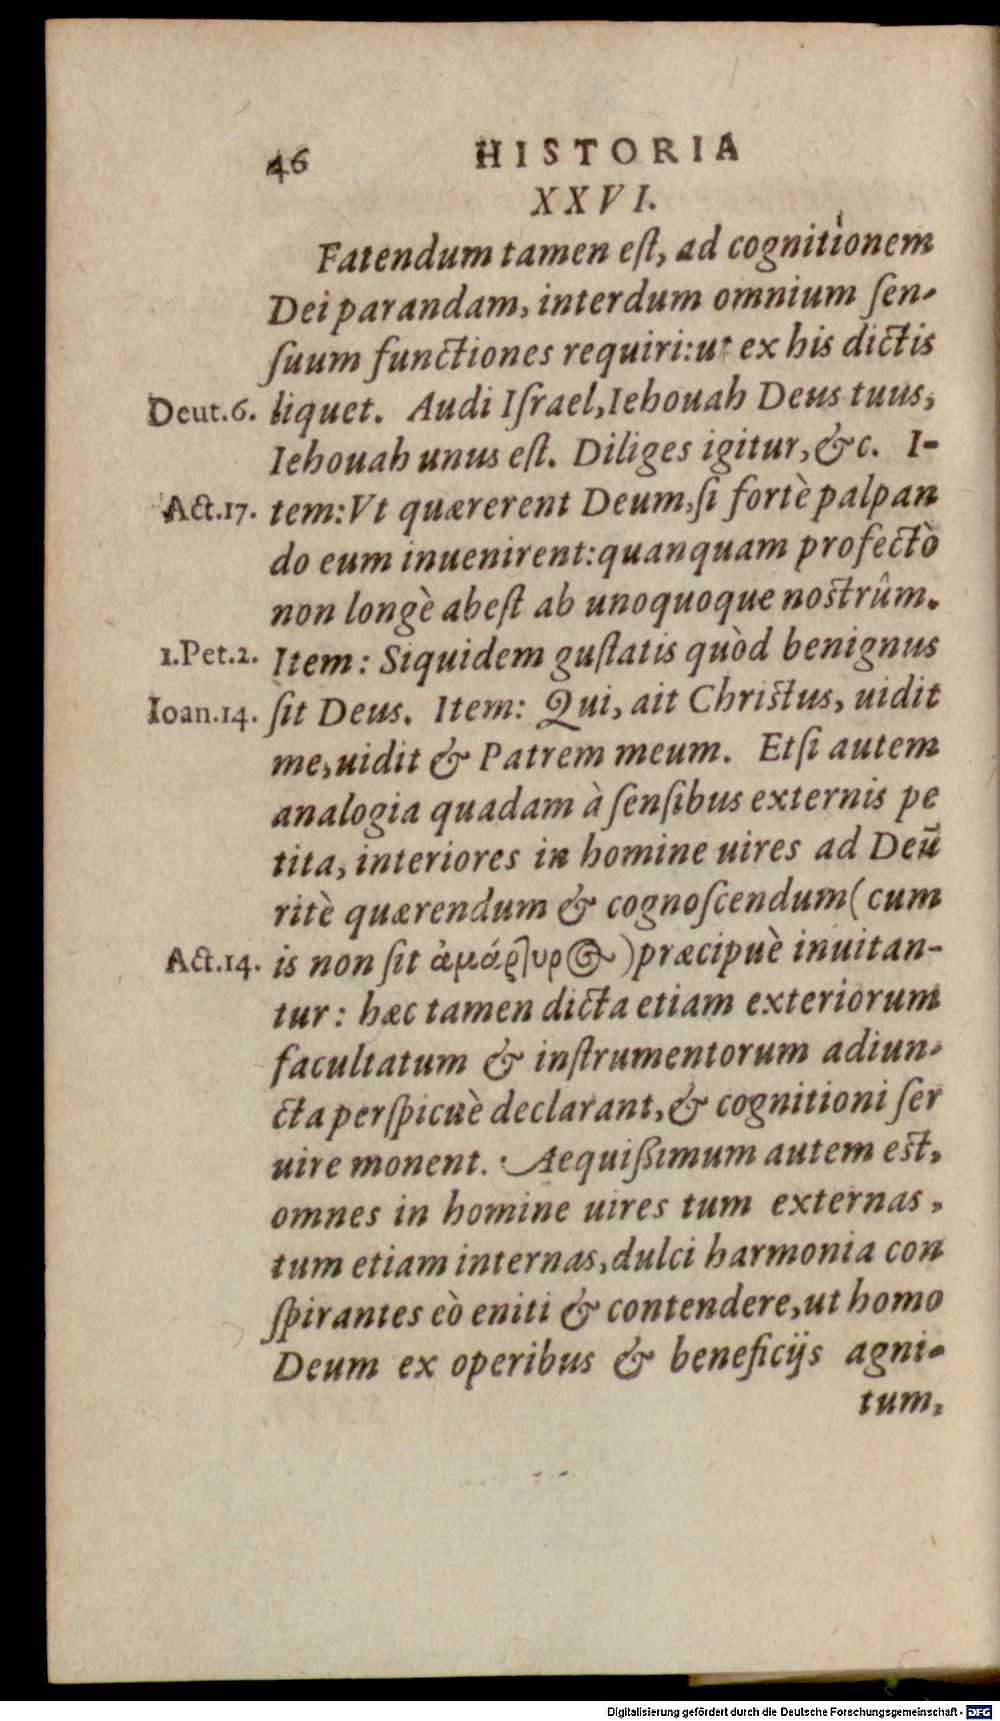 46 HISTORIA
XXVI.
Fatendum tamen eſt, ad cognitionem
Dei parandam, interdum omnium ſen-
ſuum functiones requiri: ut ex his dictis
Deut.6. liquet. Audi Iſrael, Iehouah Deus tuus,
Iehouah unus eſt. Diliges igitur, &c. I-
Act.17. tem: Vt quærerent Deum, ſi fortè palpan
do eum inuenirent: quanquam profectò
non longè abeſt ab unoquoque noſtrûm.
1.Pet.2. Item: Siquidem guſtatis quòd benignus
Ioan.14. ſit Deus. Item: Qui, ait Chriſtus, uidit
me, uidit & Patrem meum. Etſi autem
analogia quadam à ſenſibus externis pe
tita, interiores in homine uires ad Deū
ritè quærendum & cognoſcendum (cum
Act.14. is non ſit ἀμάρτυρος) præcipuè inuitan-
tur: hæc tamen dicta etiam exteriorum
facultatum & inſtrumentorum adiun-
cta perſpicuè declarant, & cognitioni ſer
uire monent. Aequiſſimum autem eſt,
omnes in homine uires tum externas,
tum etiam internas, dulci harmonia con
ſpirantes eò eniti & contendere, ut homo
Deum ex operibus & beneficijs agni-
tum,
Digitalisierung gefördert durch die Deutsche Forschungsgemeinschaft - DFG